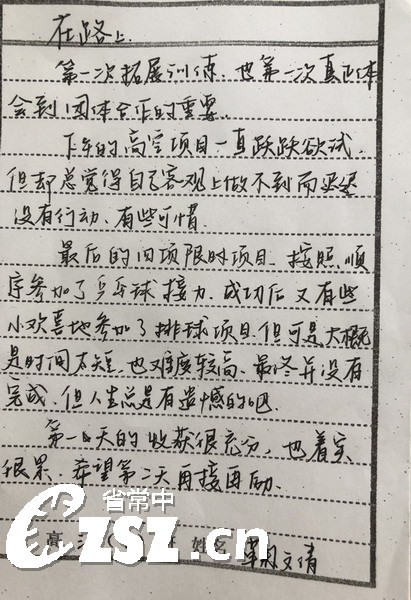 在路上
第一次拓展训练，也第一次真正体
会到团体合作的重要。
下午的高空项目一直跃跃欲试，
但却总觉得自己客观上做不到而迟迟
没有行动，有些可惜。
最后的四项限时项目，按照顺
序参加了乒乓球接力，成功后又有些
小欢喜地参加了排球项目，但可是大概
是时间太短，也难度较高，最终并没有
完成，但人生总是有遗憾的吧。
第一天的收获很充分，也着实
很累，希望第二天再接再励。
省常中
CZSZ.cn
高 班 姓名 文倩